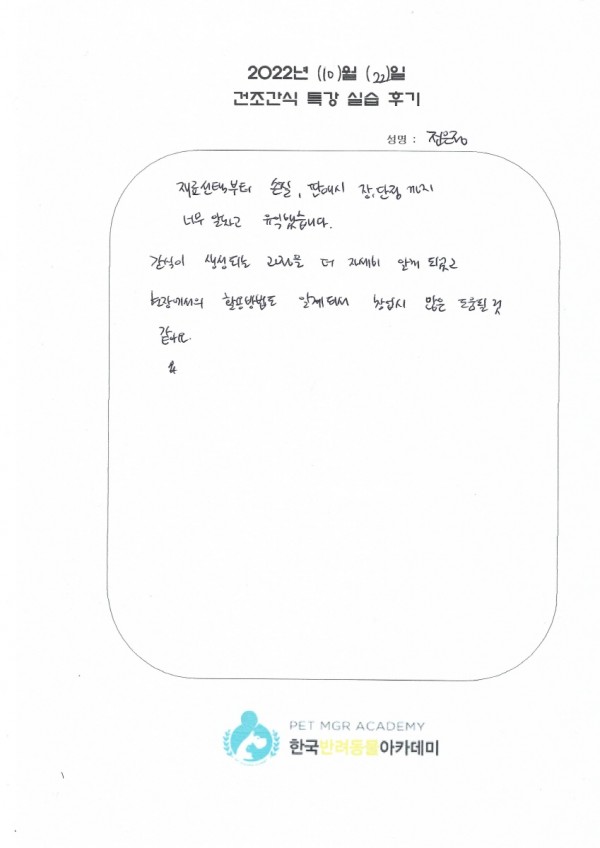 2022년 (10)월 (22)일
건조간식 특강 실습 후기
성명 :
재료선택부터 손질, 판매시 장,단점 까지
너무 알차고 유익했습니다.
간식이 생성되는 과정을 더 자세히 알게 되었고
현장에서의 활용방법도 알게되서 창업시 많은 도움될 것
같아요.
PET MGR ACADEMY
한국반려동물아카데미